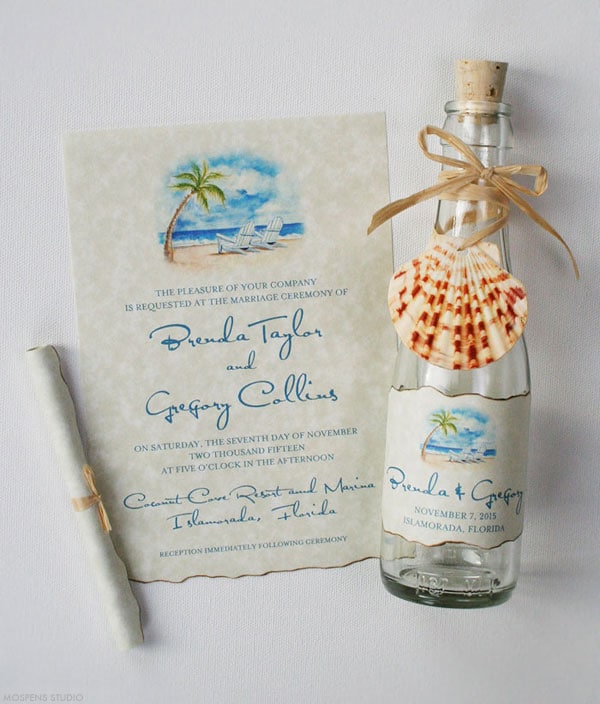 THE PLEASURE OF YOUR COMPANY
IS REQUESTED AT THE MARRIAGE CEREMONY OF
Brenda Taylor
and
Gregory Collins
ON SATURDAY, THE SEVENTH DAY OF NOVEMBER
TWO THOUSAND FIFTEEN
AT FIVE O'CLOCK IN THE AFTERNOON
Coconut Cove Resort and Marina
Islamorada, Florida
RECEPTION IMMEDIATELY FOLLOWING CEREMONY
Brenda & Gregory
NOVEMBER 7, 2015
ISLAMORADA, FLORIDA
MOSPENS STUDIO